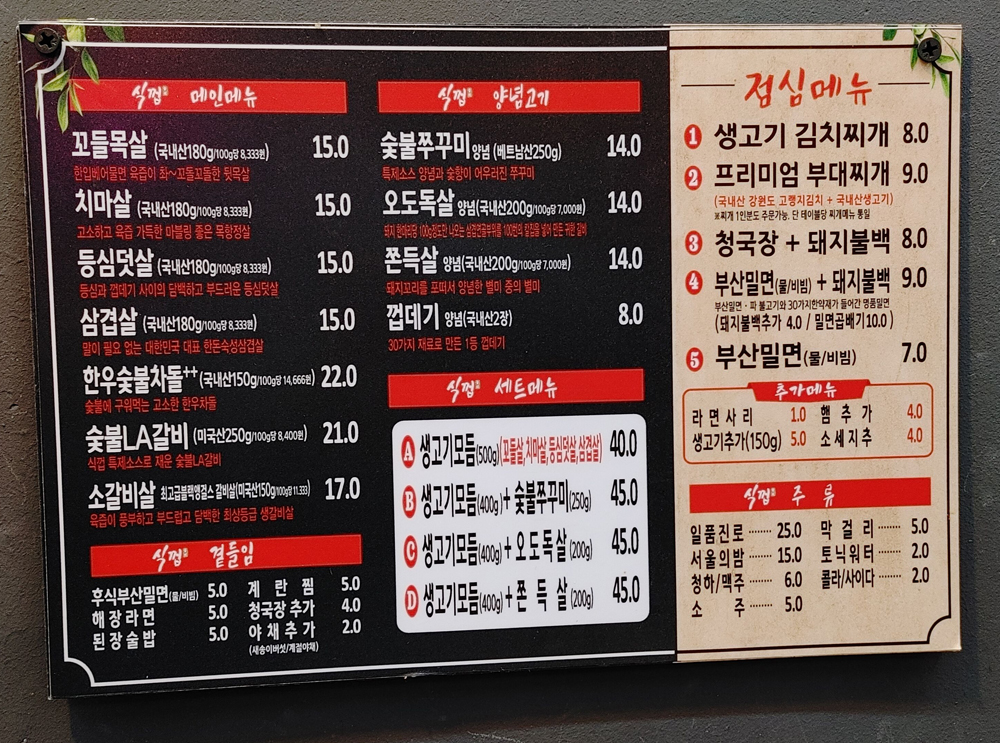 식껍 메인메뉴
꼬들목살 (국내산180g/100g당 8,333원) 15.0
한입베어물면 육즙이 화~꼬돌꼬돌한 뒷목살
치마살 (국내산180g/100g당 8,333원) 15.0
고소하고 육즙 가득한 마블링 좋은 목항정살
등심덧살 (국내산180g/100g당 8,333원) 15.0
등심과 껍데기 사이의 담백하고 부드러운 등심덧살
삼겹살 (국내산180g/100g당 8,333원) 15.0
말이 필요 없는 대한민국 대표 한돈숙성삼겹살
한우숯불차돌++ (국내산150g/100g당 14,666원) 22.0
숯불에 구워먹는 고소한 한우차돌
숯불LA갈비 (미국산250g/100g당 8,400원) 21.0
식껍 특제소스로 재운 숯불LA갈비
소갈비살 최고급블랙앵걸스 갈비살(미국산150g/100g당 11,333) 17.0
육즙이 풍부하고 부드럽고 담백한 최상등급 생갈비살
식껍 곁들임
후식부산밀면(물/비빔) 5.0
해장라면 5.0
된장술밥 5.0
계란찜 5.0
청국장추가 4.0
야채추가 2.0
(새송이버섯/계절야채)
식껍 양념고기
숯불쭈꾸미 양념 (베트남산250g) 14.0
특제소스 양념과 숯향이 어우러진 쭈꾸미
오도독살 양념(국내산200g/100g당 7,000원) 14.0
돼지 한마리당 100g정도만 나오는 삼겹연골부위를 100번의 칼집을 넣어 만든 귀한 갈비
쫀득살 양념(국내산200g/100g당 7,000원) 14.0
돼지꼬리를 포떠서 양념한 별미 중의 별미
껍데기 양념(국내산2장) 8.0
30가지 재료로 만든 1등 껍데기
식껍 세트메뉴
A 생고기모듬(500g)(꼬들살,치마살,등심덧살,삼겹살) 40.0
B 생고기모듬(400g)+숯불쭈꾸미(250g) 45.0
C 생고기모듬(400g)+오도독살(200g) 45.0
D 생고기모듬(400g)+쫀득살(200g) 45.0
점심메뉴
1 생고기 김치찌개 8.0
2 프리미엄 부대찌개 9.0
(국내산 강원도 고랭지김치 + 국내산생고기)
※찌개 1인분도 주문가능. 단 테이블당 찌개메뉴 통일
3 청국장 + 돼지불백 8.0
4 부산밀면(물/비빔) + 돼지불백 9.0
부산밀면 · 파 불고기와 30가지한약재가 들어간 명품밀면
(돼지불백추가 4.0 / 밀면곱배기10.0 )
5 부산밀면(물/비빔) 7.0
추가메뉴
라면사리 1.0 햄추가 4.0
생고기추가(150g) 5.0 소세지추 4.0
식껍 주류
일품진로 25.0
서울의밤 15.0
청하/맥주 6.0
소주 5.0
막걸리 5.0
토닉워터 2.0
콜라/사이다 2.0